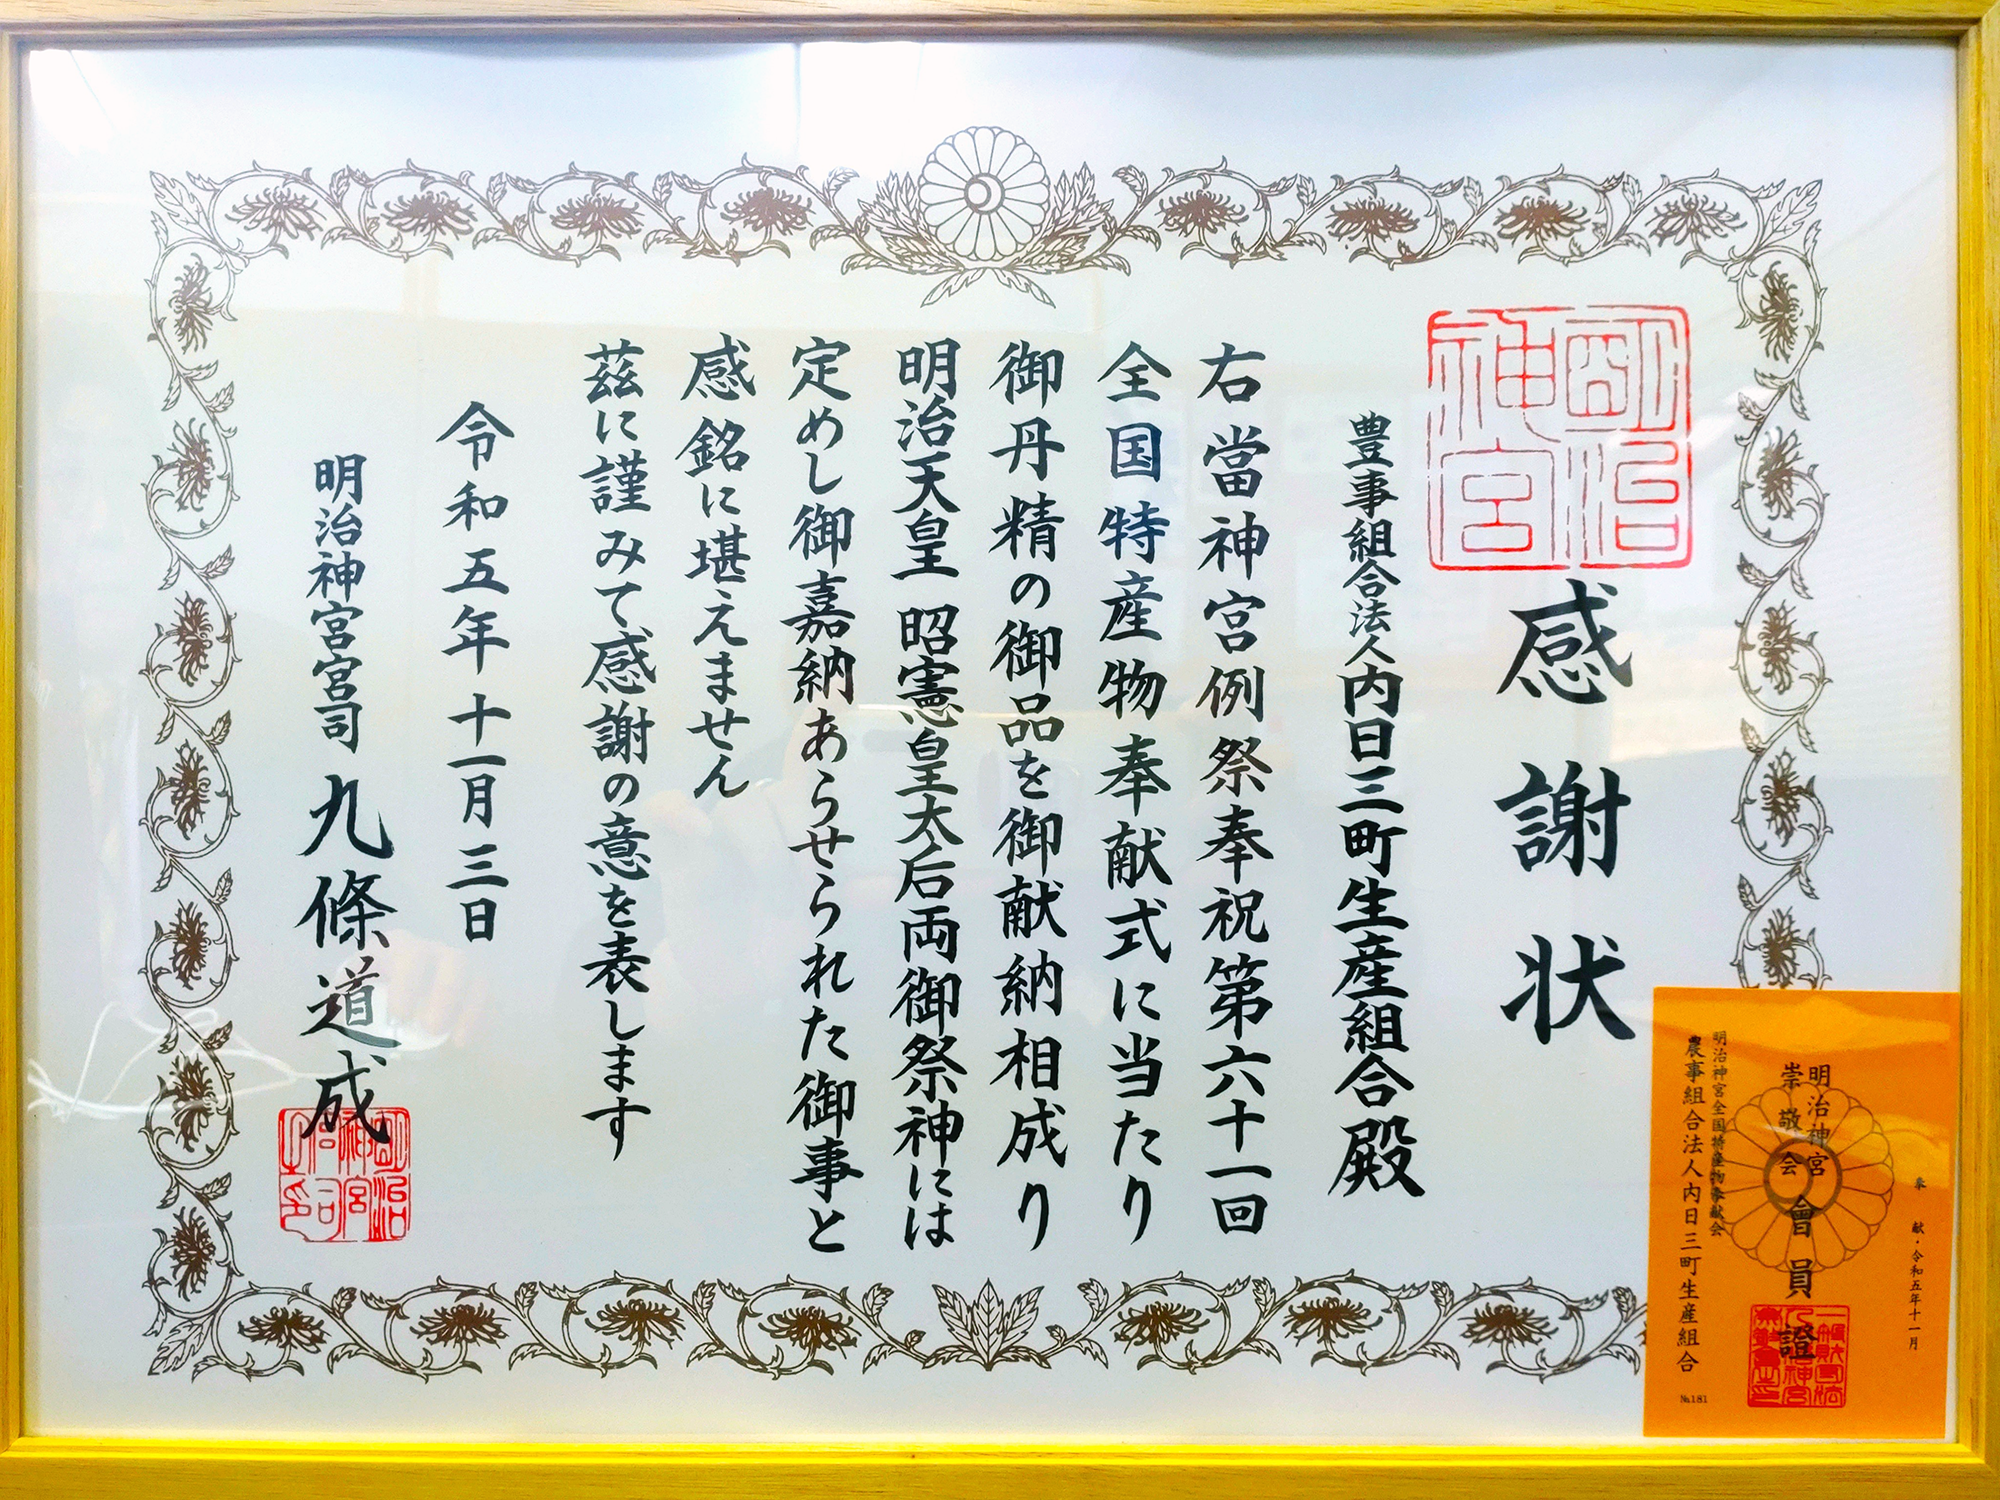 明治
神宮
感謝状
豊事組合法人内日三町生産組合殿
右當神宮例祭奉祝第六十一回
全国特産物奉献式に当たり
御丹精の御品を御献納相成り
明治天皇 昭憲皇太后両御祭神には
定めし御嘉納あらせられた御事と
感銘に堪えません
茲に謹みて感謝の意を表します
令和五年十一月三日
明治神宮宮司 九條道成
明治
神宮
宮司
之印
奉献・令和五年十一月
明治神宮
崇敬会
會員證
明治神宮全国特産物奉献会
農事組合法人内日三町生産組合
№181